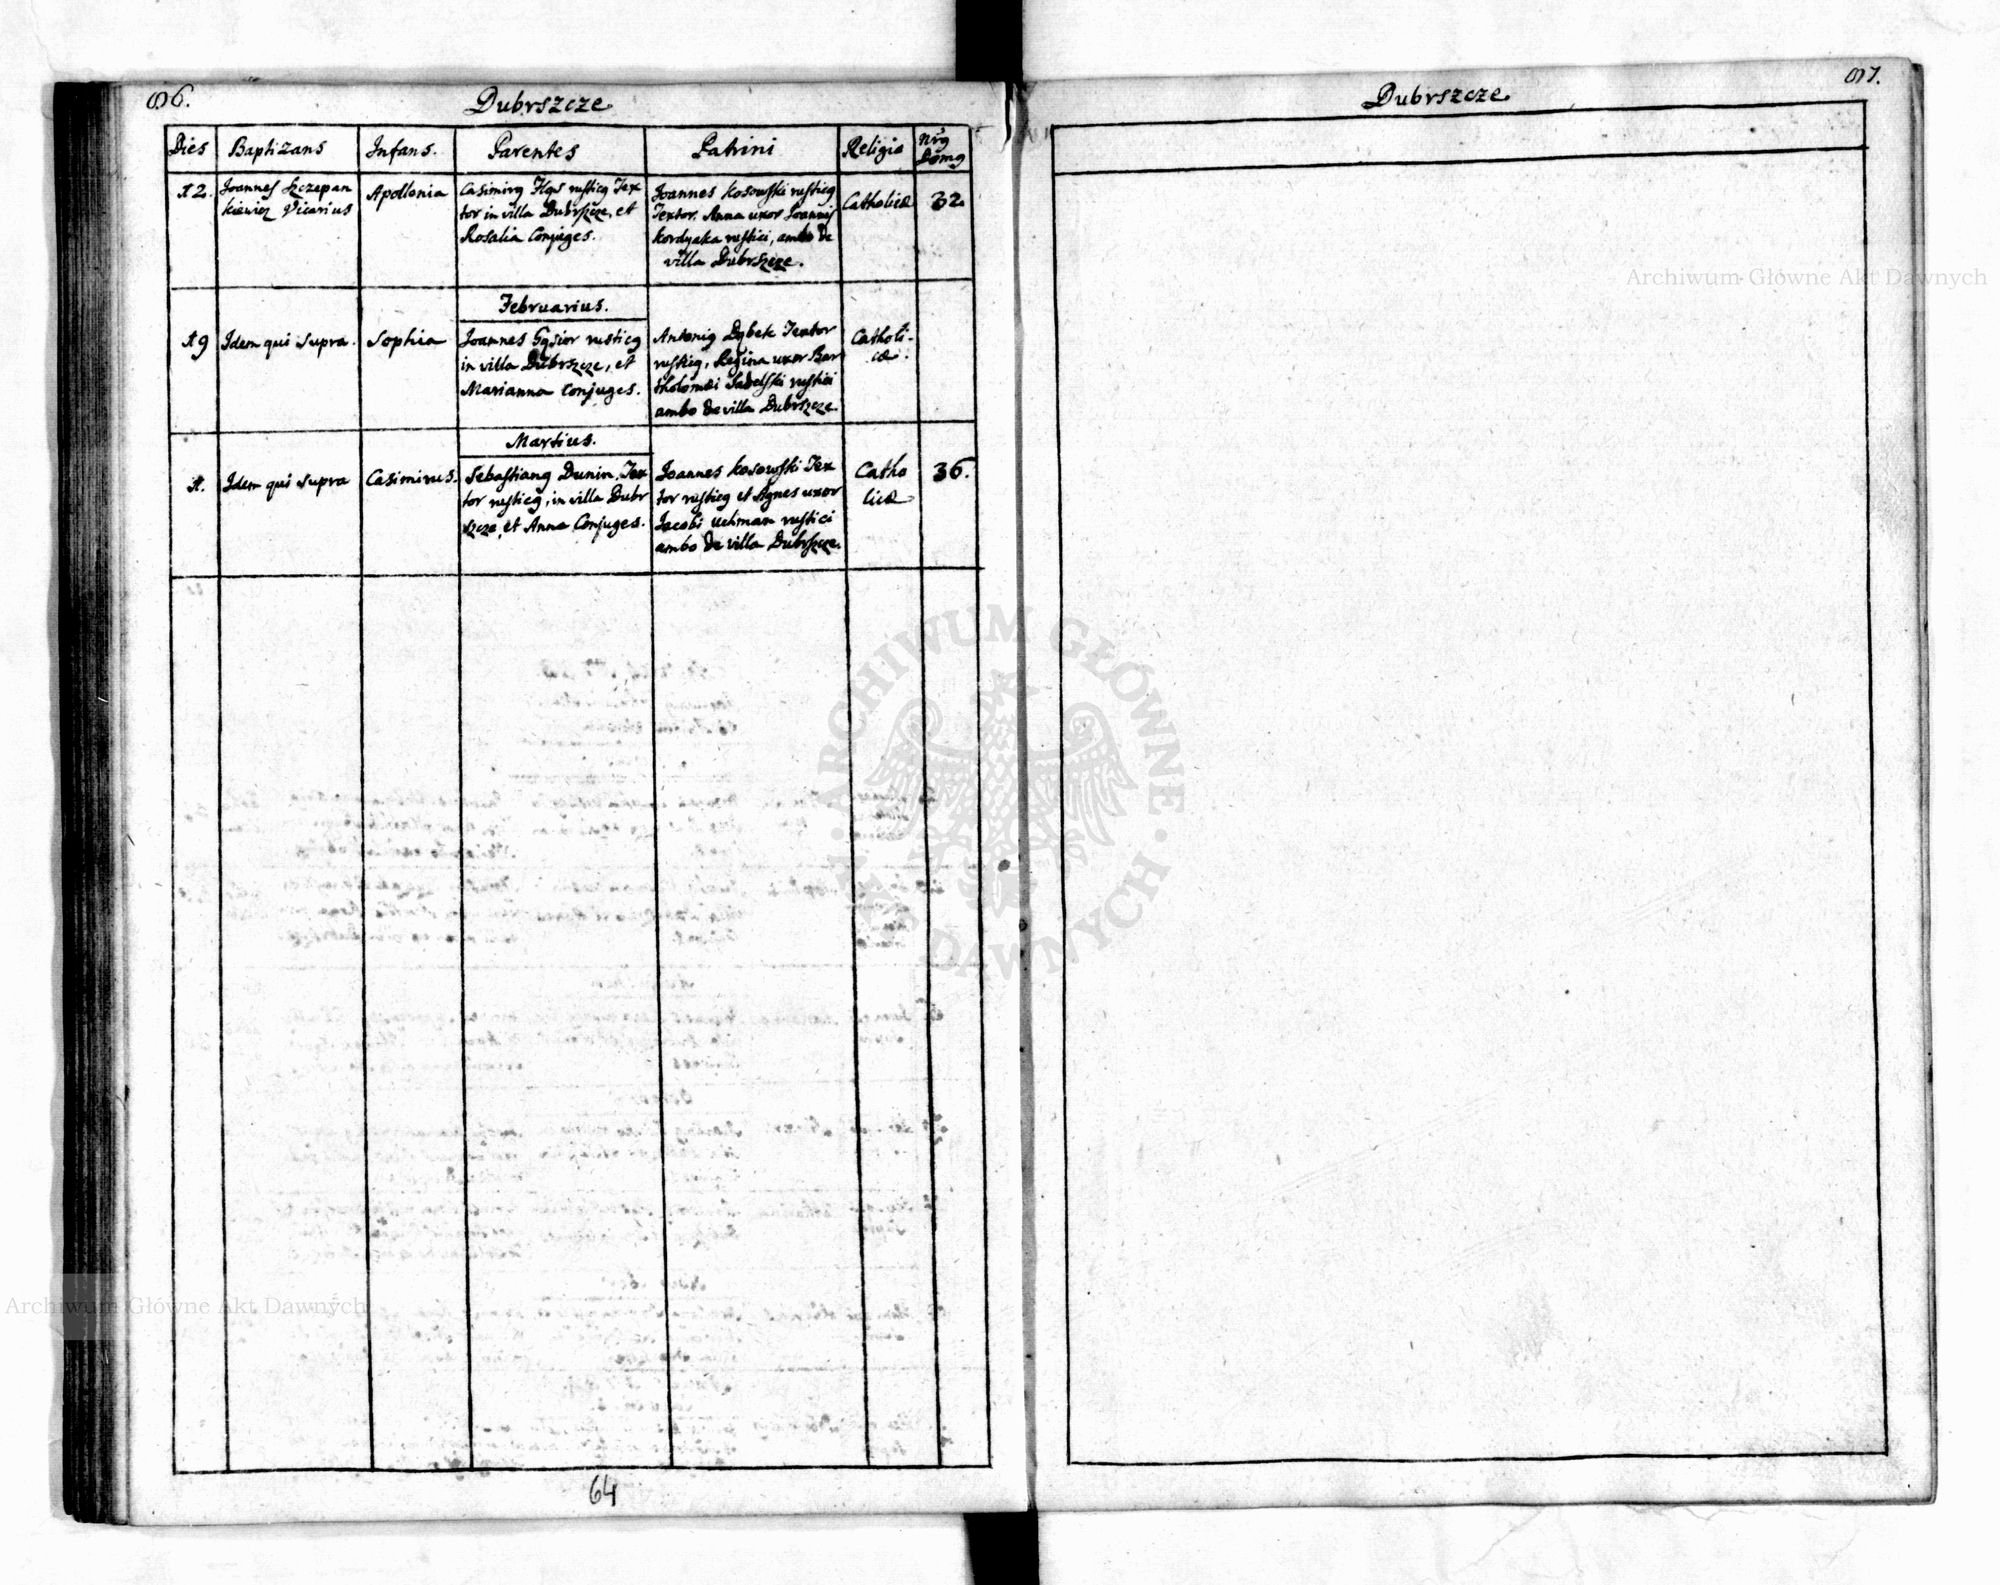 Dubrszcze
Dies Baptizans Infans. Parentes Patrini Religio Nrg Domg
12. Joannes Szczepan
kiewicz Vicarius
Apollonia
Casimirg rusticg Tex
tor in villa Dubrszcze, et
Rosalia Conjuges.
Joannes Kosowski rusticg
Textor. Anna uxor Joannis
Kordyaka rustici, ambo de
villa Dubrszcze.
Catholica
32.
Februarius.
19 Idem qui supra.
Sophia
Joannes Gąsior rusticg
in villa Dubrszcze, et
Marianna Conjuges.
Antonig Dybek Textor
rusticg, Regina uxor Bar
tholomæi rustici
ambo de villa Dubrszcze
Catholi-
ca.
Martius.
1. Idem qui supra
Casimirus.
Sebastiang Dunin, Tex
tor rusticg, in villa Dubr
szcze, et Anna Conjuges.
Joannes Kosowski Tex
tor rusticg et Agnes uxor
Jacobi Uchman rustici
ambo de villa Dubrszcze.
Catho
lica
36.
64
Dubrszcze
Archiwum Główne Akt Dawnych
ARCHIWUM GŁÓWNE AKT DAWNYCH
Archiwum Główne Akt Dawnych